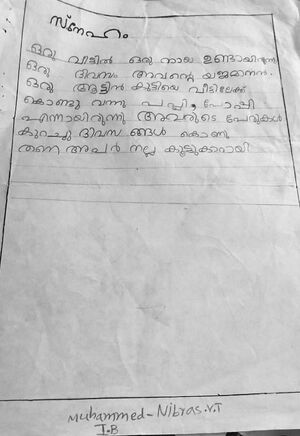 സ്നേഹം
ഒരു വീട്ടിൽ ഒരു നായ ഉണ്ടായിരുന്നു
ഒരു ദിവസം അവന്റെ യജമാനൻ
ഒരു ആട്ടിൻ കുട്ടിയെ വീട്ടിലേക്ക്
കൊണ്ടു വന്നു പപ്പി, പോപ്പി
എന്നായിരുന്നു അവരുടെ പേരുകൾ
കുറച്ചു ദിവസങ്ങൾ കൊണ്ടു
തന്നെ അവർ നല്ല കൂട്ടുകാറായി
Muhammed-Nibras.V.T
I.B